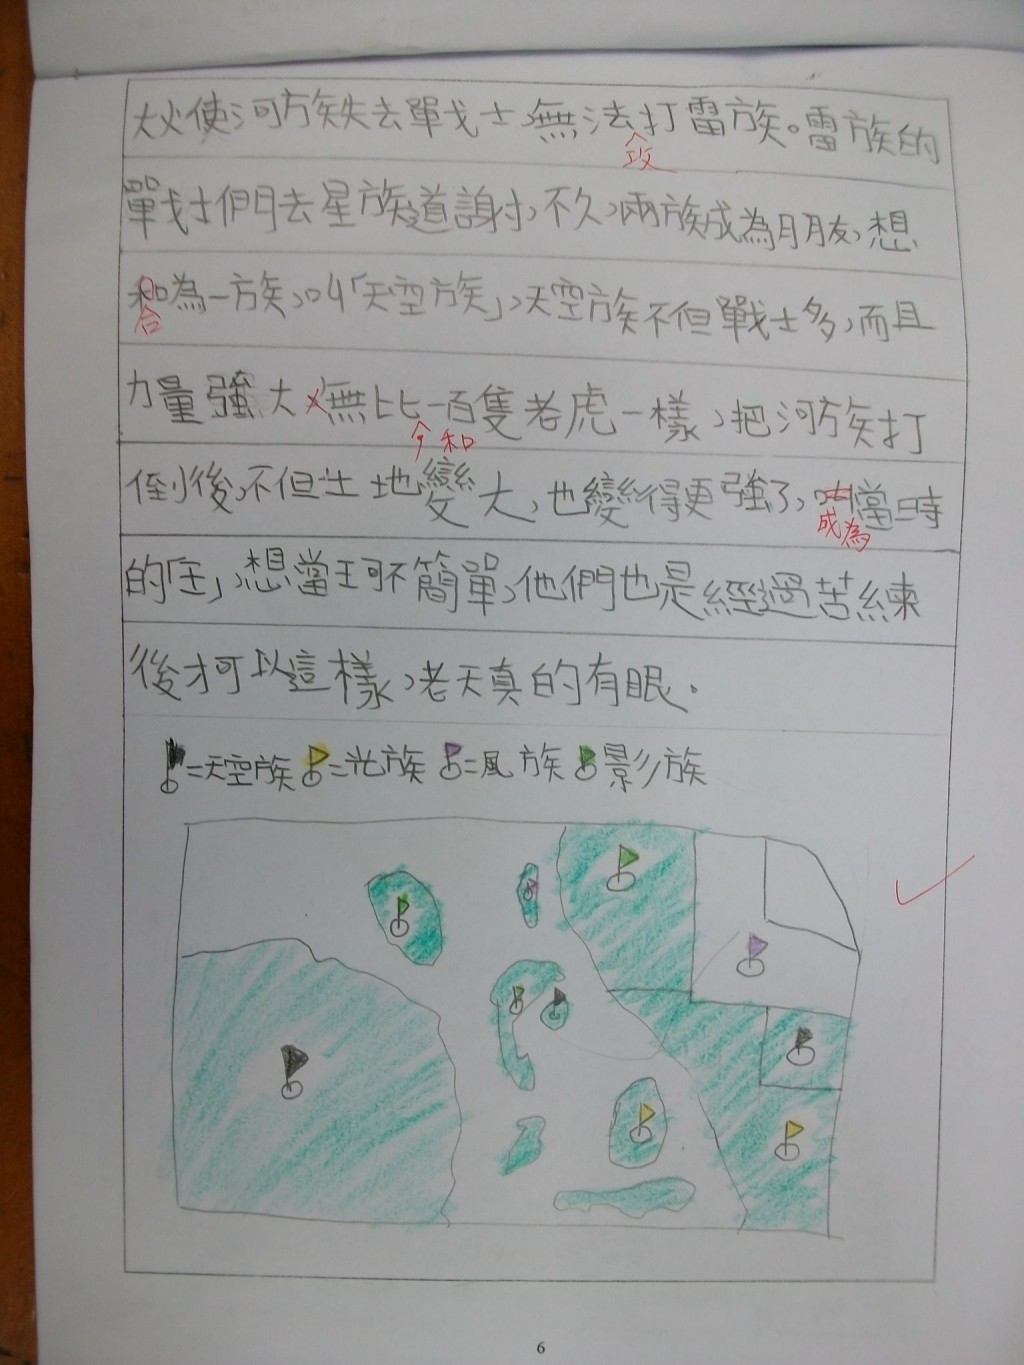 大火使河族失去戰士,無法打雷族。雷族的
攻
戰士們去星族道謝,不久,兩族成為朋友,想
和為一族,叫「天空族」,天空族不但戰士多,而且
合
力量強大無比一百隻老虎一樣,把河族打
和
倒後,不但土地變大,也變得更強了,叫當時
成為
的「王」,想當王可不簡單,他們也是經過苦練
後才可以這樣,老天真的有眼。
=天空族 =光族 =風族 影族
6